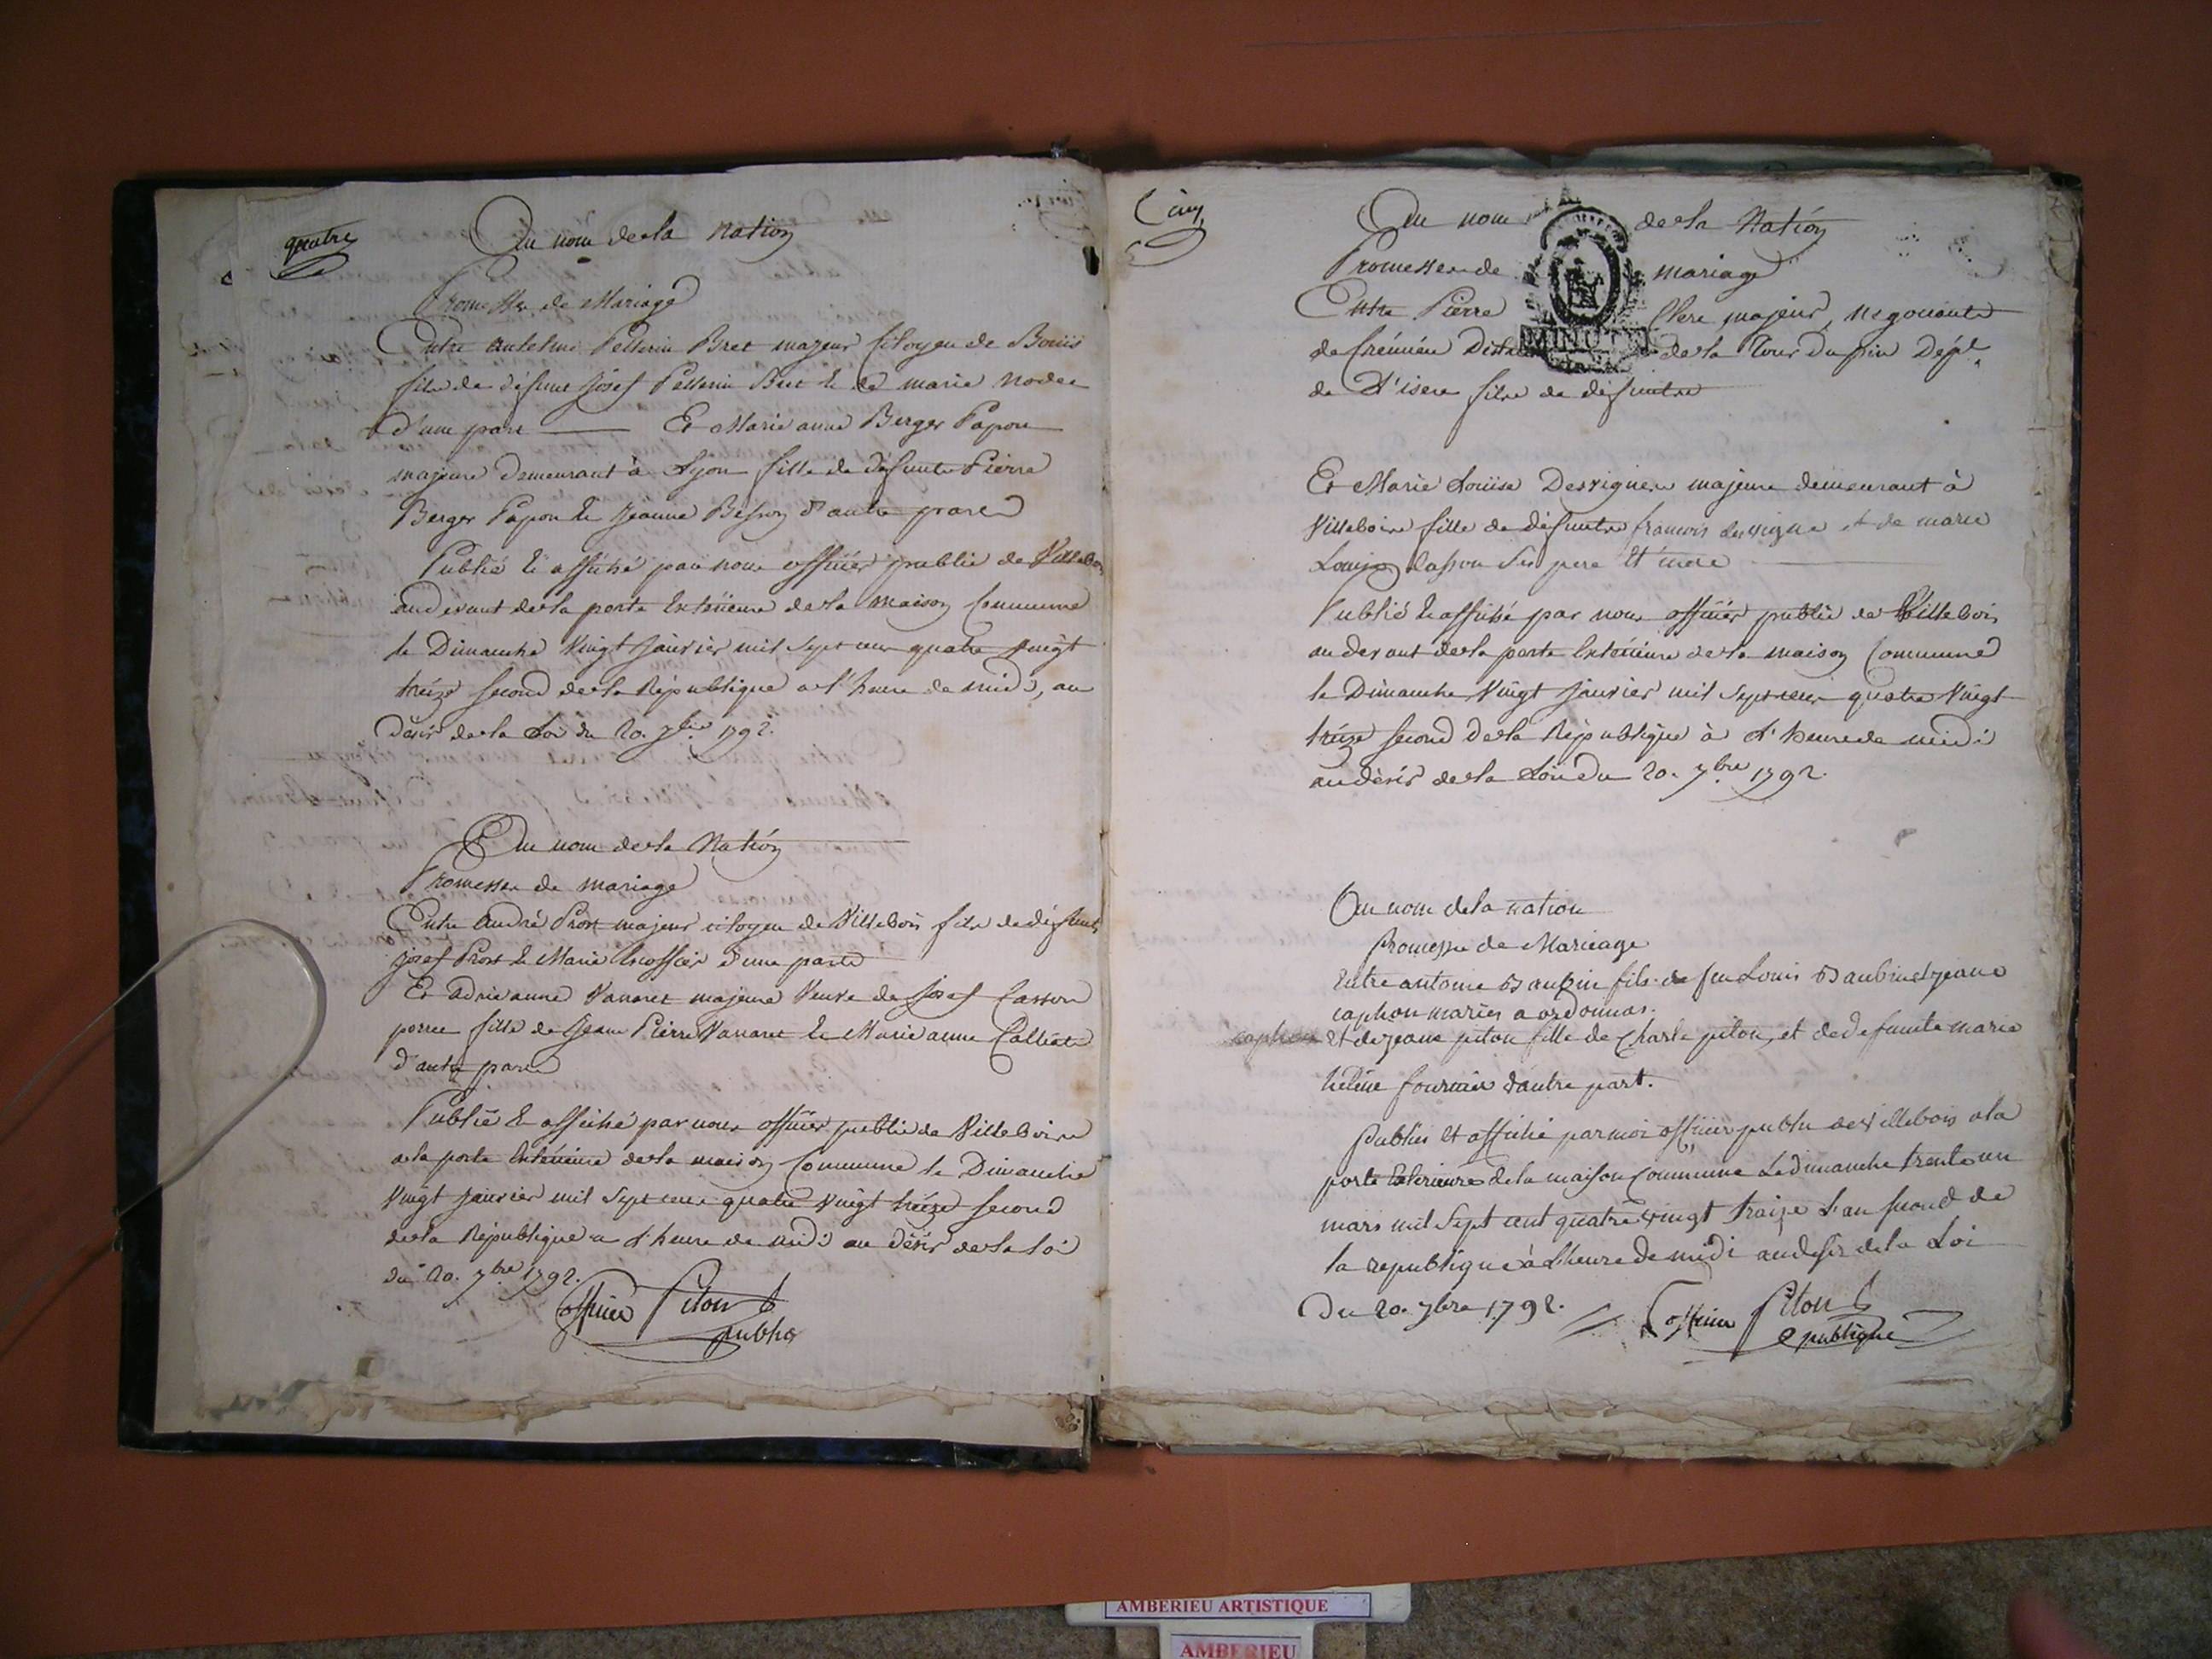 quatre
Au nom de la Nation
Promesse de Mariage
Entre antelme Pellerin Bret majeur Citoyen de Bouis
fils de défunt Josef Pellerin Bret & de marie
d'une part Et Marie anne Berger Papon
majeure Demeurant à Lyon fille de défunte Pierre
Berger Papon & Jeanne Besson d'autre part
Publié & affiché par nous officier public de Villebois
au devant de la porte Extérieure de la Maison Commune
le Dimanche Vingt Janvier mil sept cens quatre Vingt
treize second de la République a l'heure de midi, au
Désir de la Loi du 20. 7bre 1792.
Au nom de la Nation
Promesse de mariage
Entre André Prost majeur citoyen de Villebois fils de défunt
Josef Prost & Marie d'une part
Et adrianne Vanaret majeure Veuve de Josef Casson
fille de Jean Pierre Vanaret & Marie anne
d'autre part
Publié & affiché par nous officier public de Villebois
a la porte Extérieure de la maison Commune le Dimanche
Vingt Janvier mil Sept cens quatre Vingt treize second
de la République a l'heure de midi au désir de la loi
du 20. 7bre 1792.
Piton officier
public
Cinq
Au nom de la Nation
Promesse de mariage
MINUTE
Entre Pierre majeur, négociante
de Crémieu District de la Tour Du pin Dépt.
de L'isere fils de défuntre
Et Marie Louise Desvignes majeure demeurant à
Villeboire fille de défuntre francois desvigne et de marie
Louise Casson Ses pere Et mere
Publié & affiché par nous officier public de Villebois
au devant de la porte Extérieure de la maison Commune
le Dimanche Vingt Janvier mil Sept cens quatre Vingt
treize second de la République à L'heure de midi
au désir de la Loi du 20. 7bre 1792.
Au nom de la nation
Promesse de Marieage
Entre antoine fils de feu Louis et jeane
caphon mariés a ordonnas.
caphon et de jeane piton fille de Charle piton, et de defunte marie
héleine fournier dautre part.
Publiés et affiché par moi officier public de Villebois a la
porte Exterieure de la maison Commune Le dimanche trente un
mars mil Sept cent quatre vingt traize L'an second de
la republique à L'heure de midi au desir de la Loi
Du 20. 7bre 1792. Piton officier
publique
AMBERIEU ARTISTIQUE
AMBERIEU